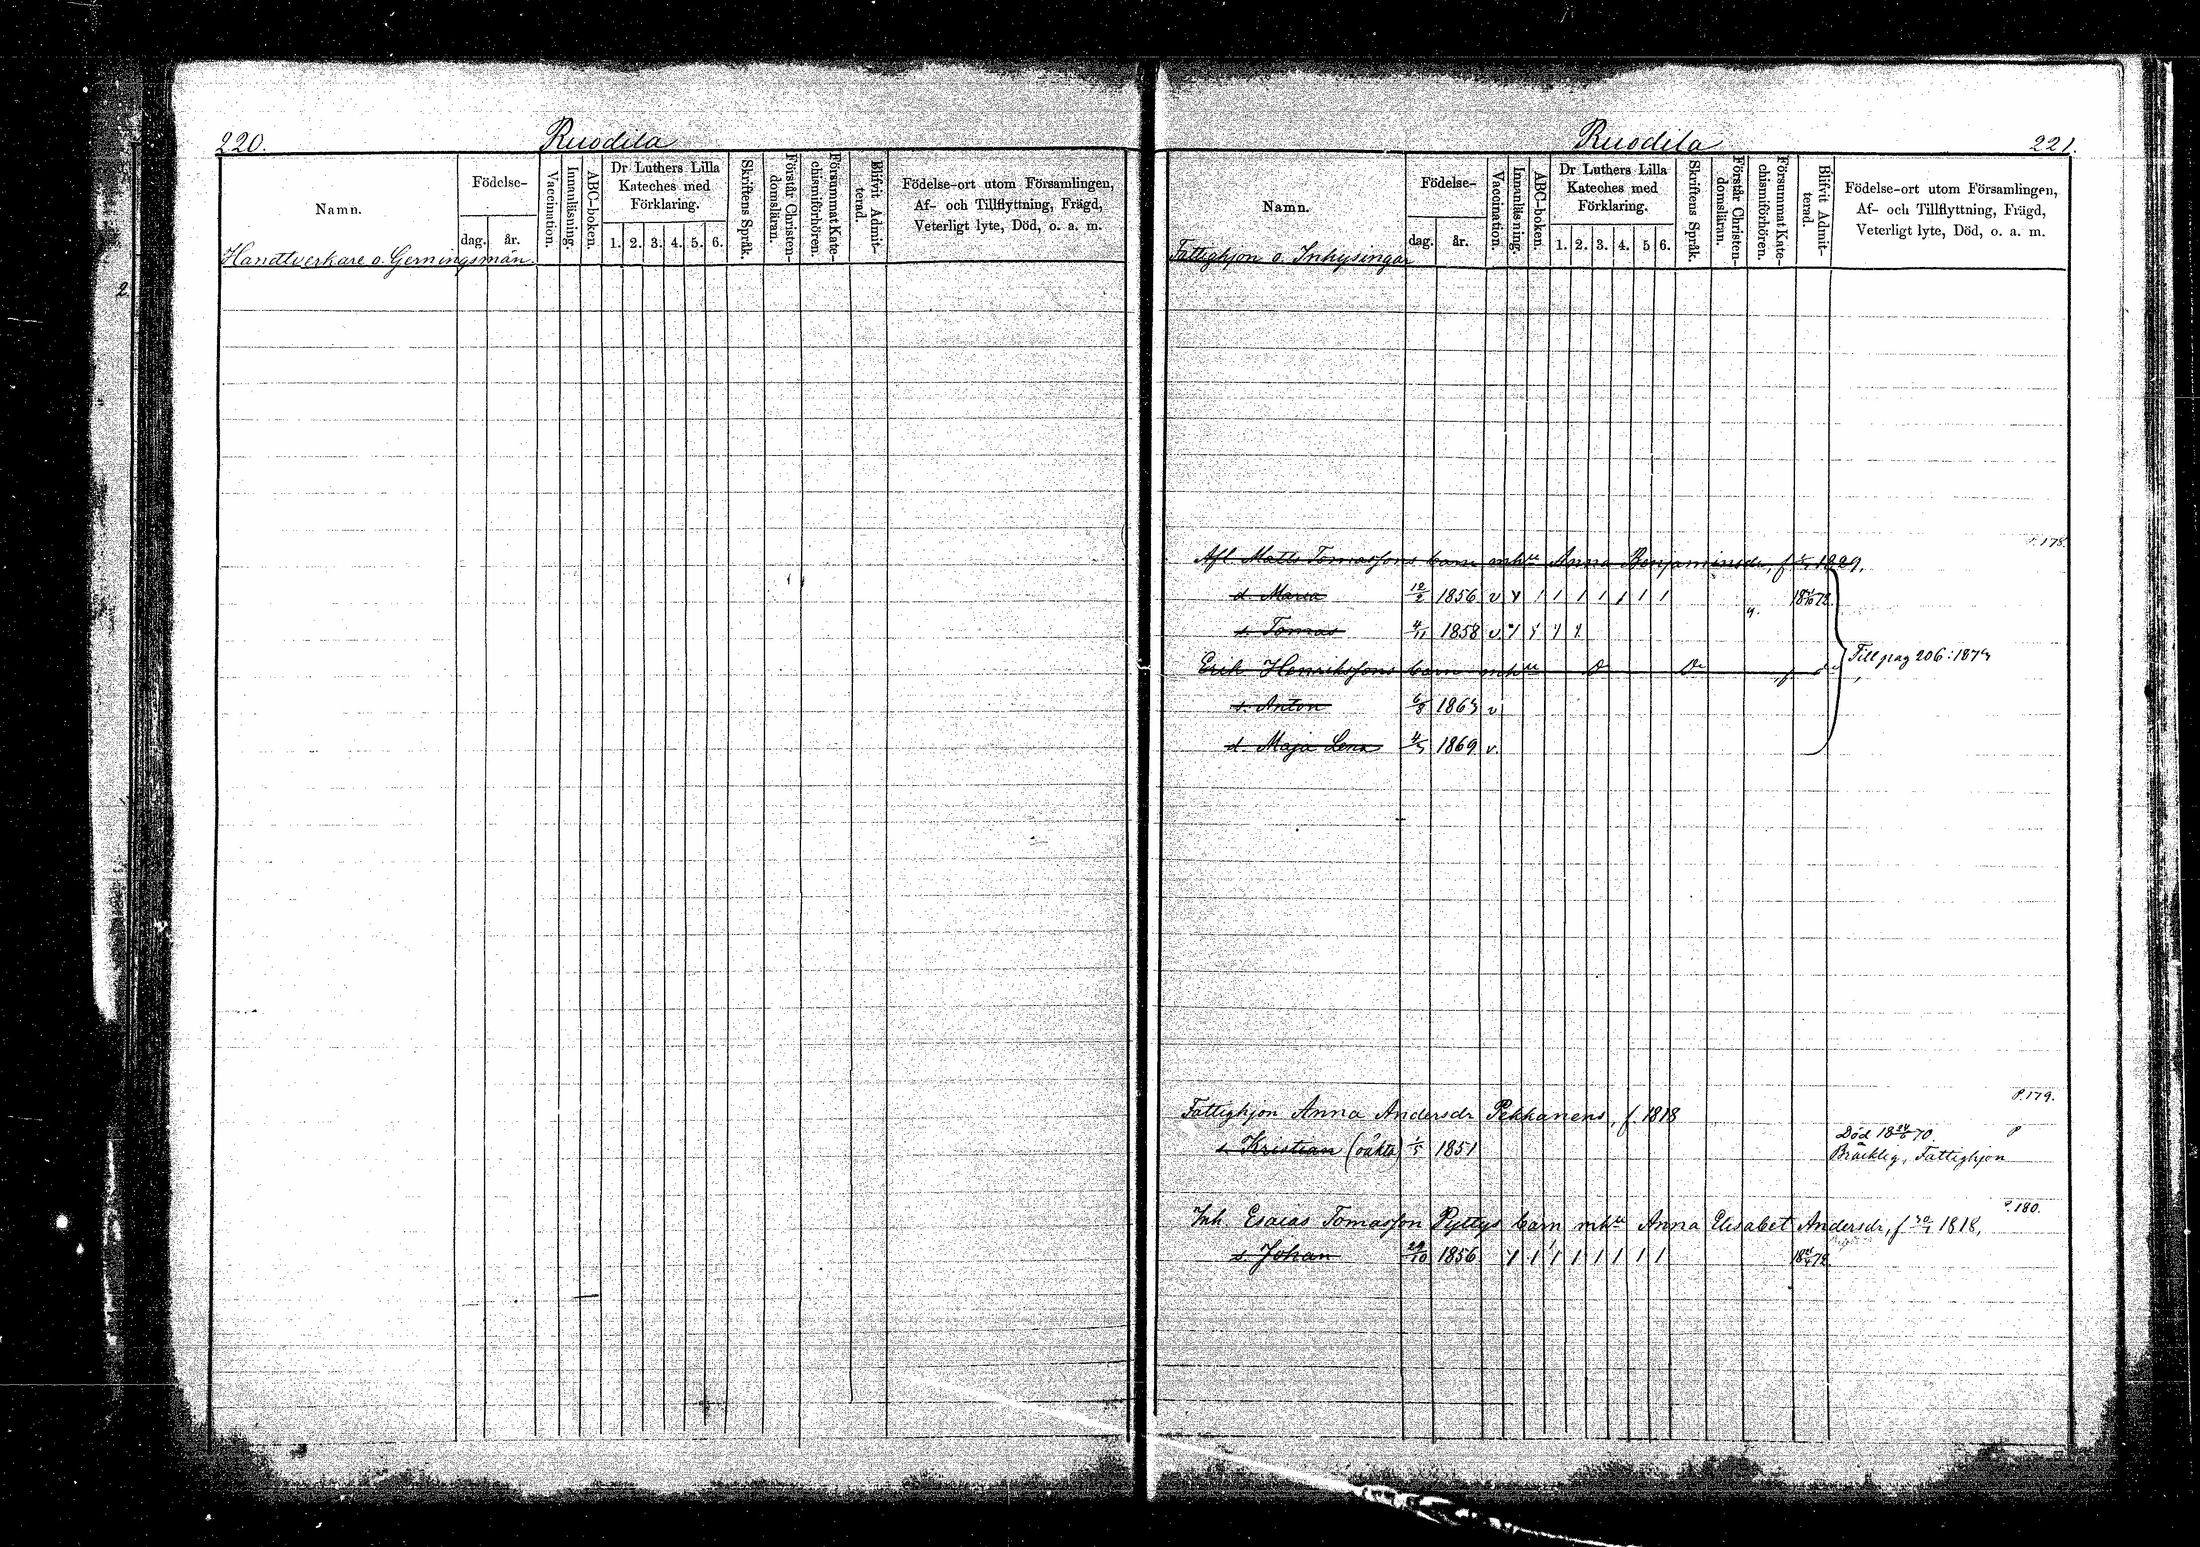 220. Ruodila
Namn. Födelse- dag. år. Vaccination. Innanläsning. ABC-boken. Dr Luthers Lilla Kateches med Förklaring. 1. 2. 3. 4. 5. 6. Skriftens Språk. Förstår Christendomsläran. Försummat Katechismiförhören. Blifvit Admitterad. Födelse-ort utom Församlingen, Af- och Tillflyttning, Frägd, Veterligt lyte, Död, o. a. m.
Handtverkare o. Gerningsmän
2.
Ruodila 221.
Namn. Födelse- dag. år. Vaccination. Innanläsning. ABC-boken. Dr Luthers Lilla Kateches med Förklaring. 1. 2. 3. 4. 5 6. Skriftens Språk. Förstår Christendomsläran. Försummat Katechismiförhören. Blifvit Admitterad. Födelse-ort utom Församlingen, Af- och Tillflyttning, Frägd, Veterligt lyte, Död, o. a. m.
Fattighjon o. Inhysingar
P. 178.
Afl. Matts Tomassons barn mh Anna Benjaminsdr, f 1829,
d. Maria 12/2 1856 v
s. Tomas 4/11 1858 v
Erik Henrikssons barn mh
Till pag 206: 1874
s. Anton 6/8 1863 v
d. Maja Lena 4/5 1869 v.
P. 179.
Fattighjon Anna Andersdr Pekkanens, f. 1818
s. Kristian (oäkta) 1/5 1851 Död 18 70.
Bräcklig, Fattighjon
P. 180.
Inh Esaias Tomasson Pyttys barn mh Anna Elisabet Andersdr, f 30/1 1818,
s Johan 29/10 1856 18 72